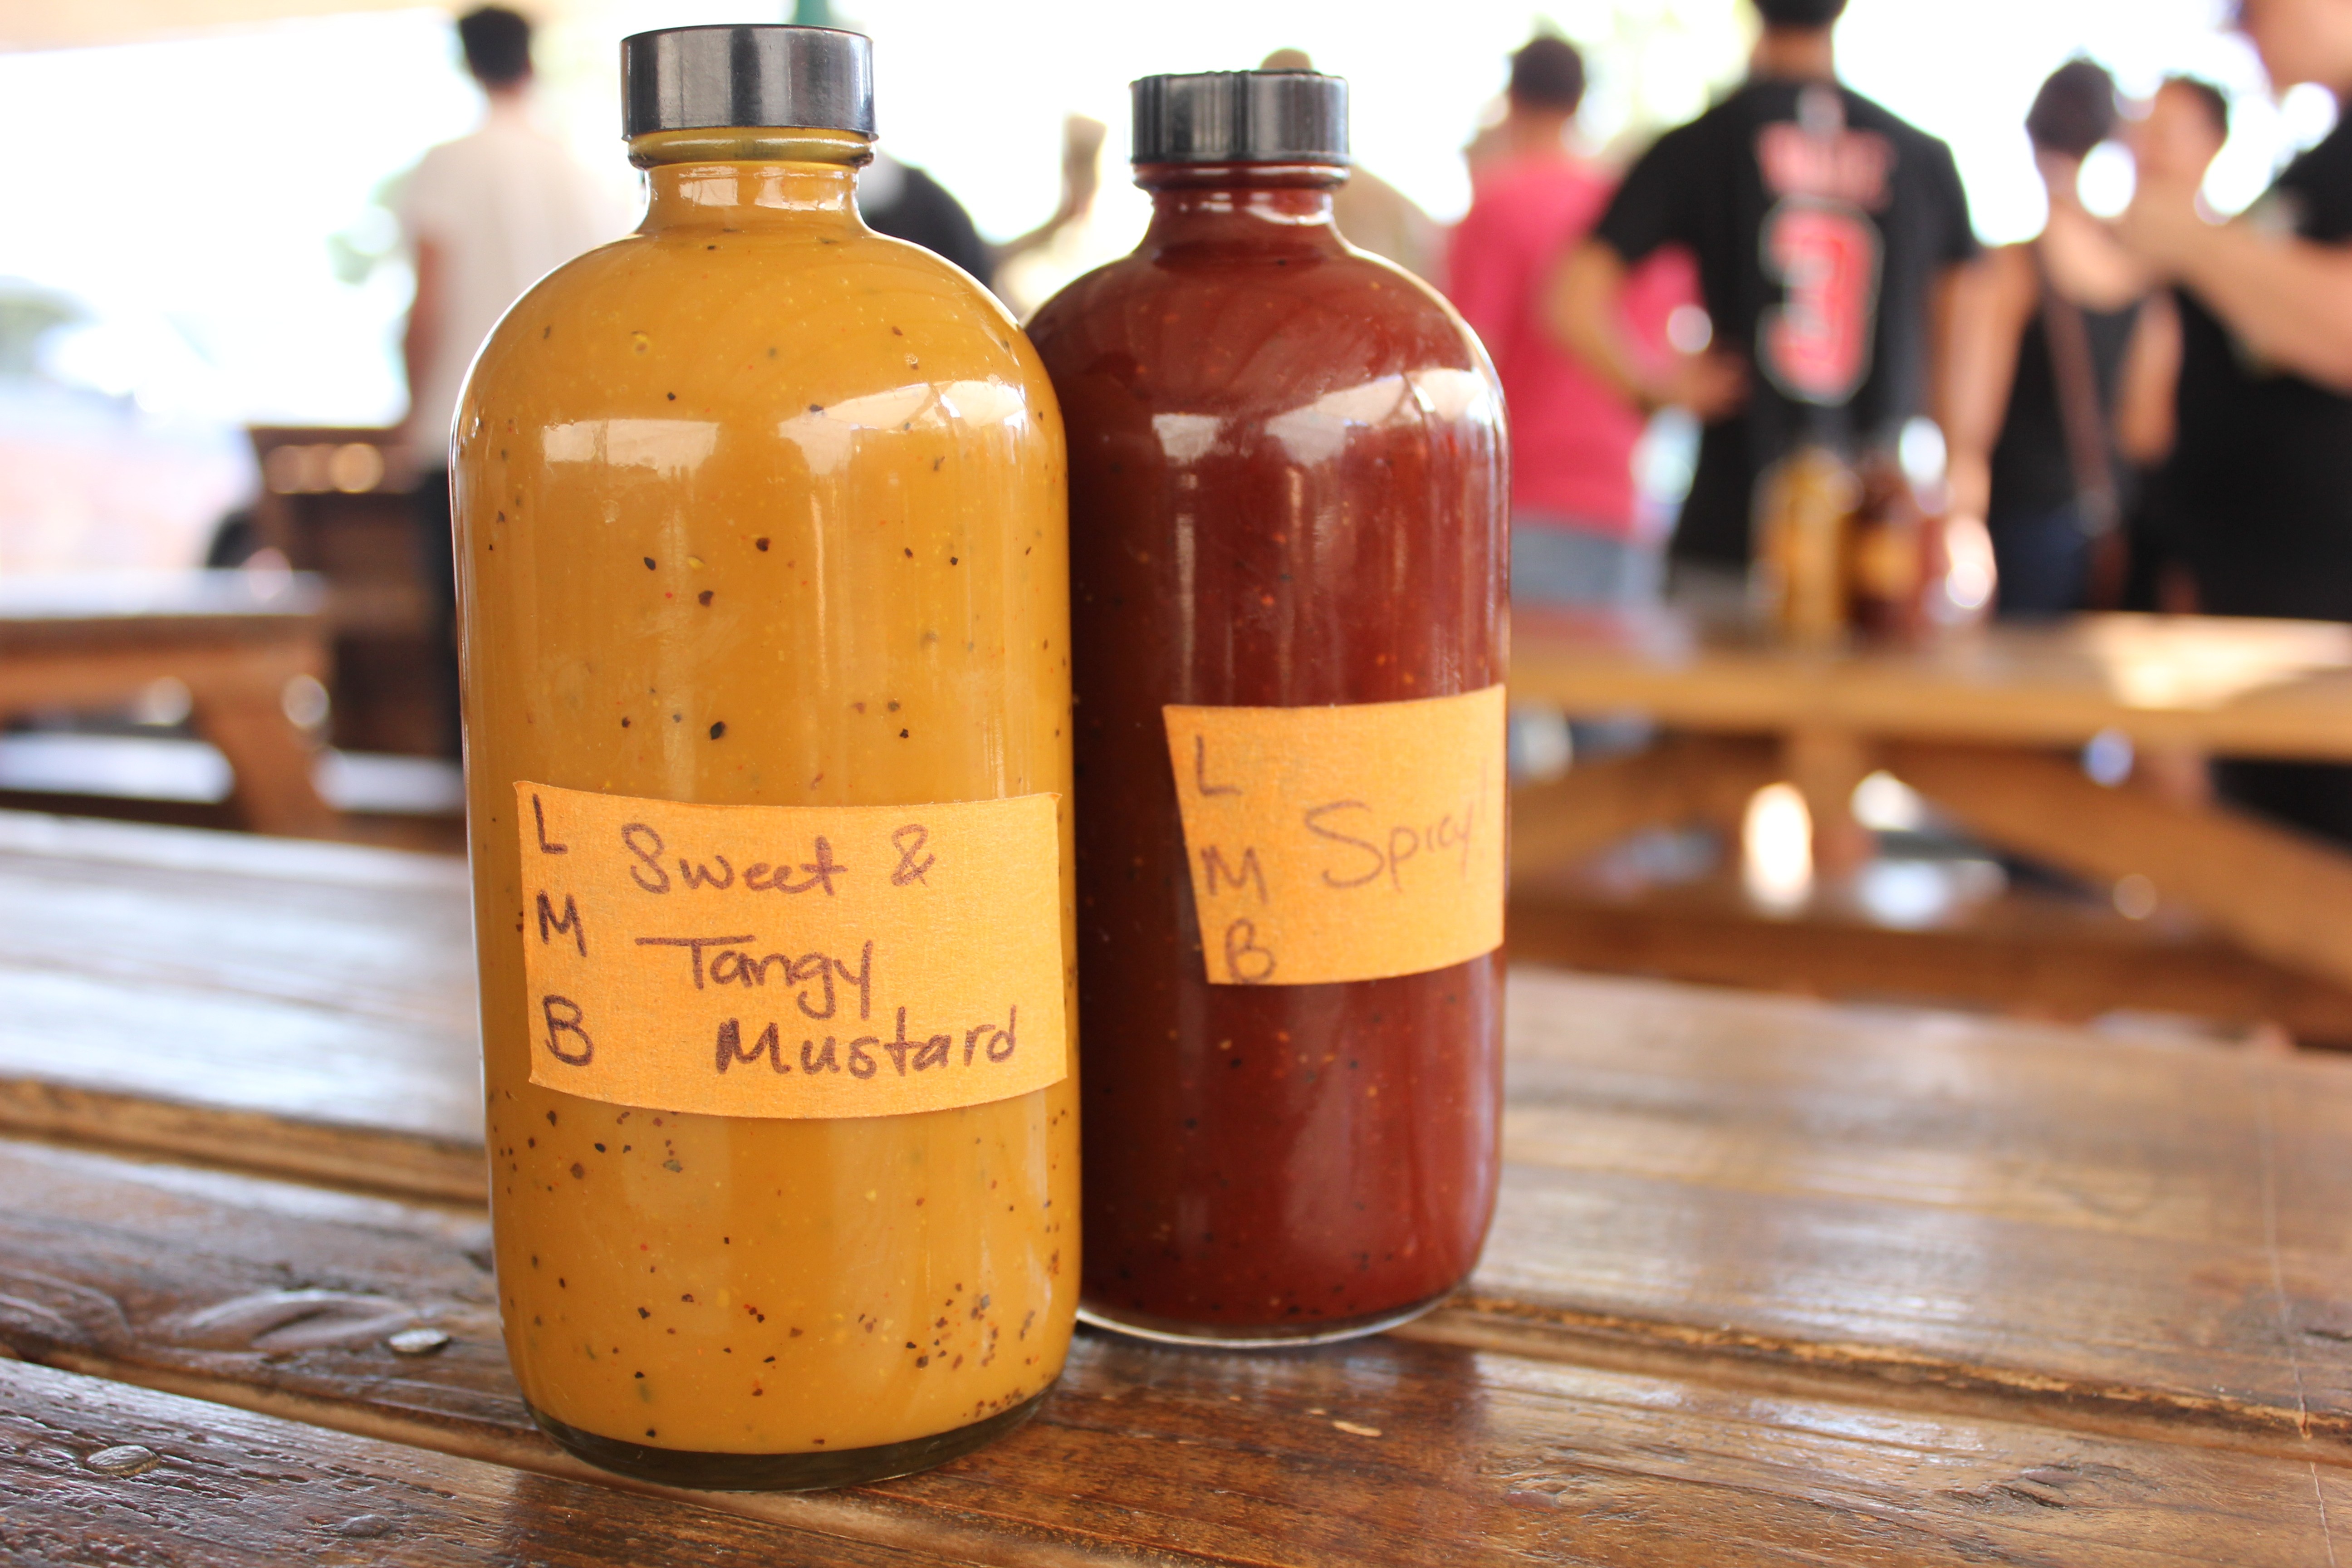 L
M
B
Sweet &
Tangy
Mustard
L
M
B
Spicy!
3